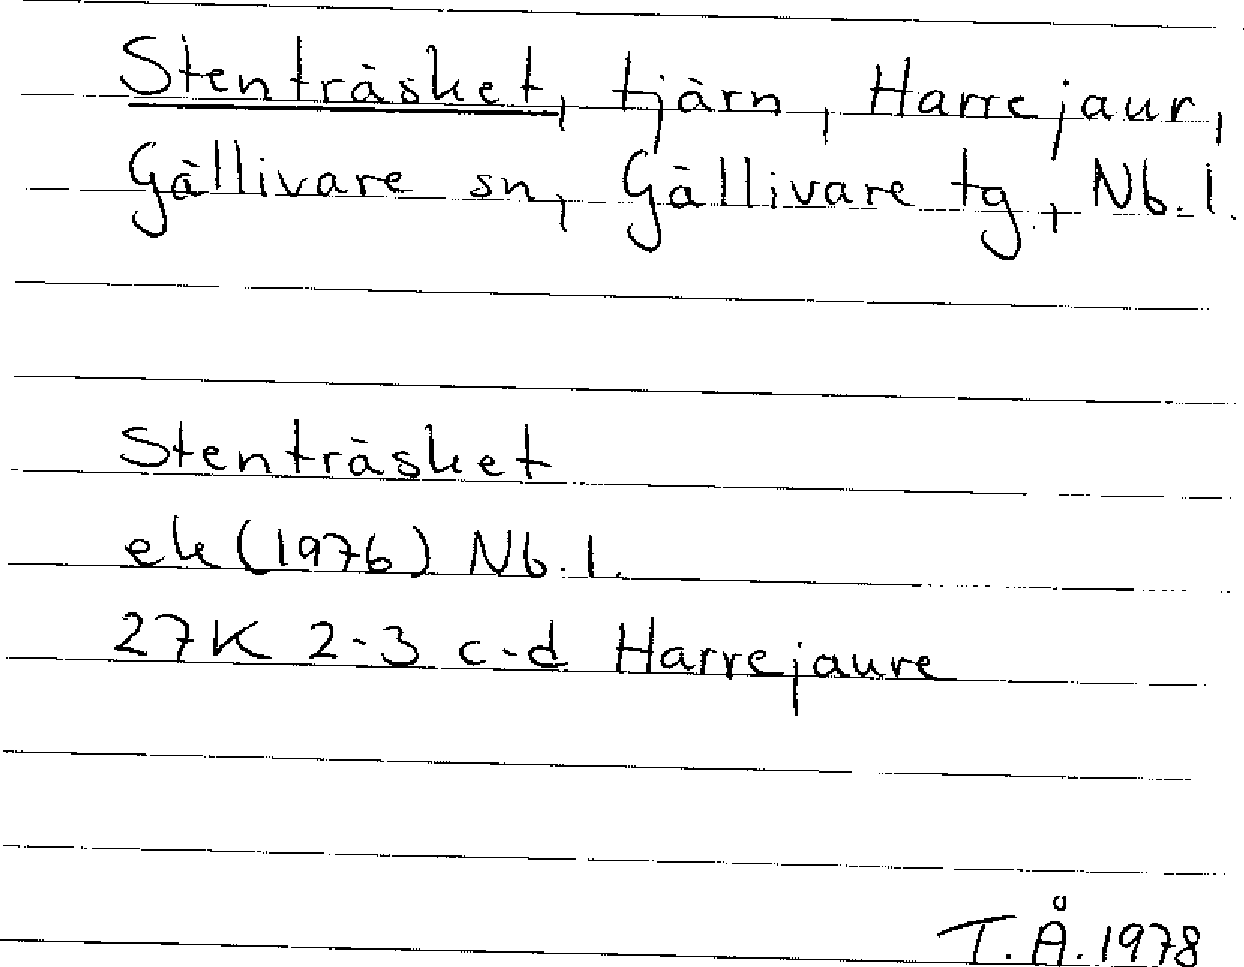 Stenträsket, tjärn, Harrejaur,
Gällivare sn, Gällivare tg., Nb. l.
Stenträsket
ek (1976) Nb. l.
27K 2-3 c-d Harrejaure
T.Å. 1978